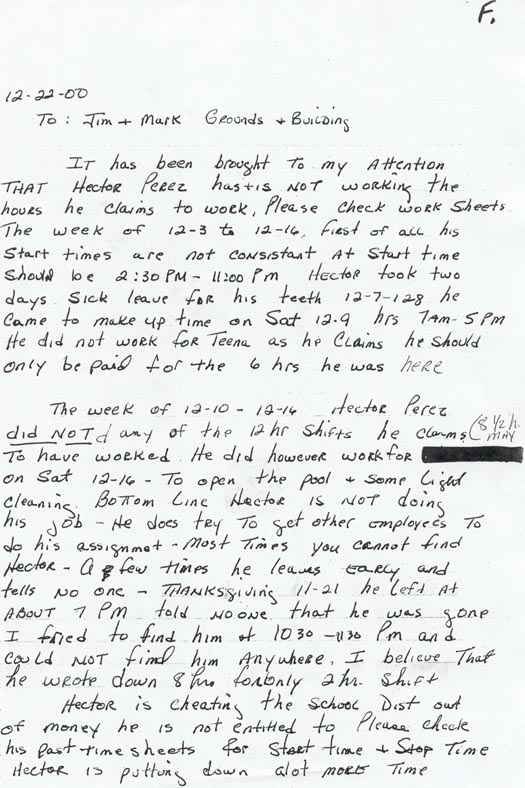 F.
12-22-00
To: Jim + Mark Grounds + Building
IT has been brought To my Attention
THAT Hector Perez has+is NOT working the
hours he claims to work, Please check work sheets
The week of 12-3 to 12-16, first of all his
Start times are not consistant At Start time
Should be 2:30 PM - 11:00 Pm Hector took two
days sick leave for his teeth 12-7-128 he
Came to make up time on Sat 12-9 hrs 7am-5PM
He did not work for Teena as he Claims he should
only be paid for the 6 hrs he was here
The week of 12-10 - 12-16 Hector Perez
did NOT d any of the 12 hr shifts he claims (8 1/2 h. MAY
To have worked. He did however work for
on Sat 12-16 - To open the pool + some light
cleaning. Bottom Line Hector is NOT doing
his job - He does try To get other employees To
do his assignmet - Most Times you cannot find
Hector - A few times he leaves early and
tells no one - THANKsgiving 11-21 he left At
ABOUT 7 PM told NO ONE that he was gone
I tried to find him at 1030 - 1130 Pm and
could NOT find him Anywhere. I believe That
he wrote down 8 hrs for only 2 hr. shift
Hector is cheating the School Dist out
of money he is not entitled to Please check
his past time sheets for Start time + Stop Time
Hector is putting down alot more Time